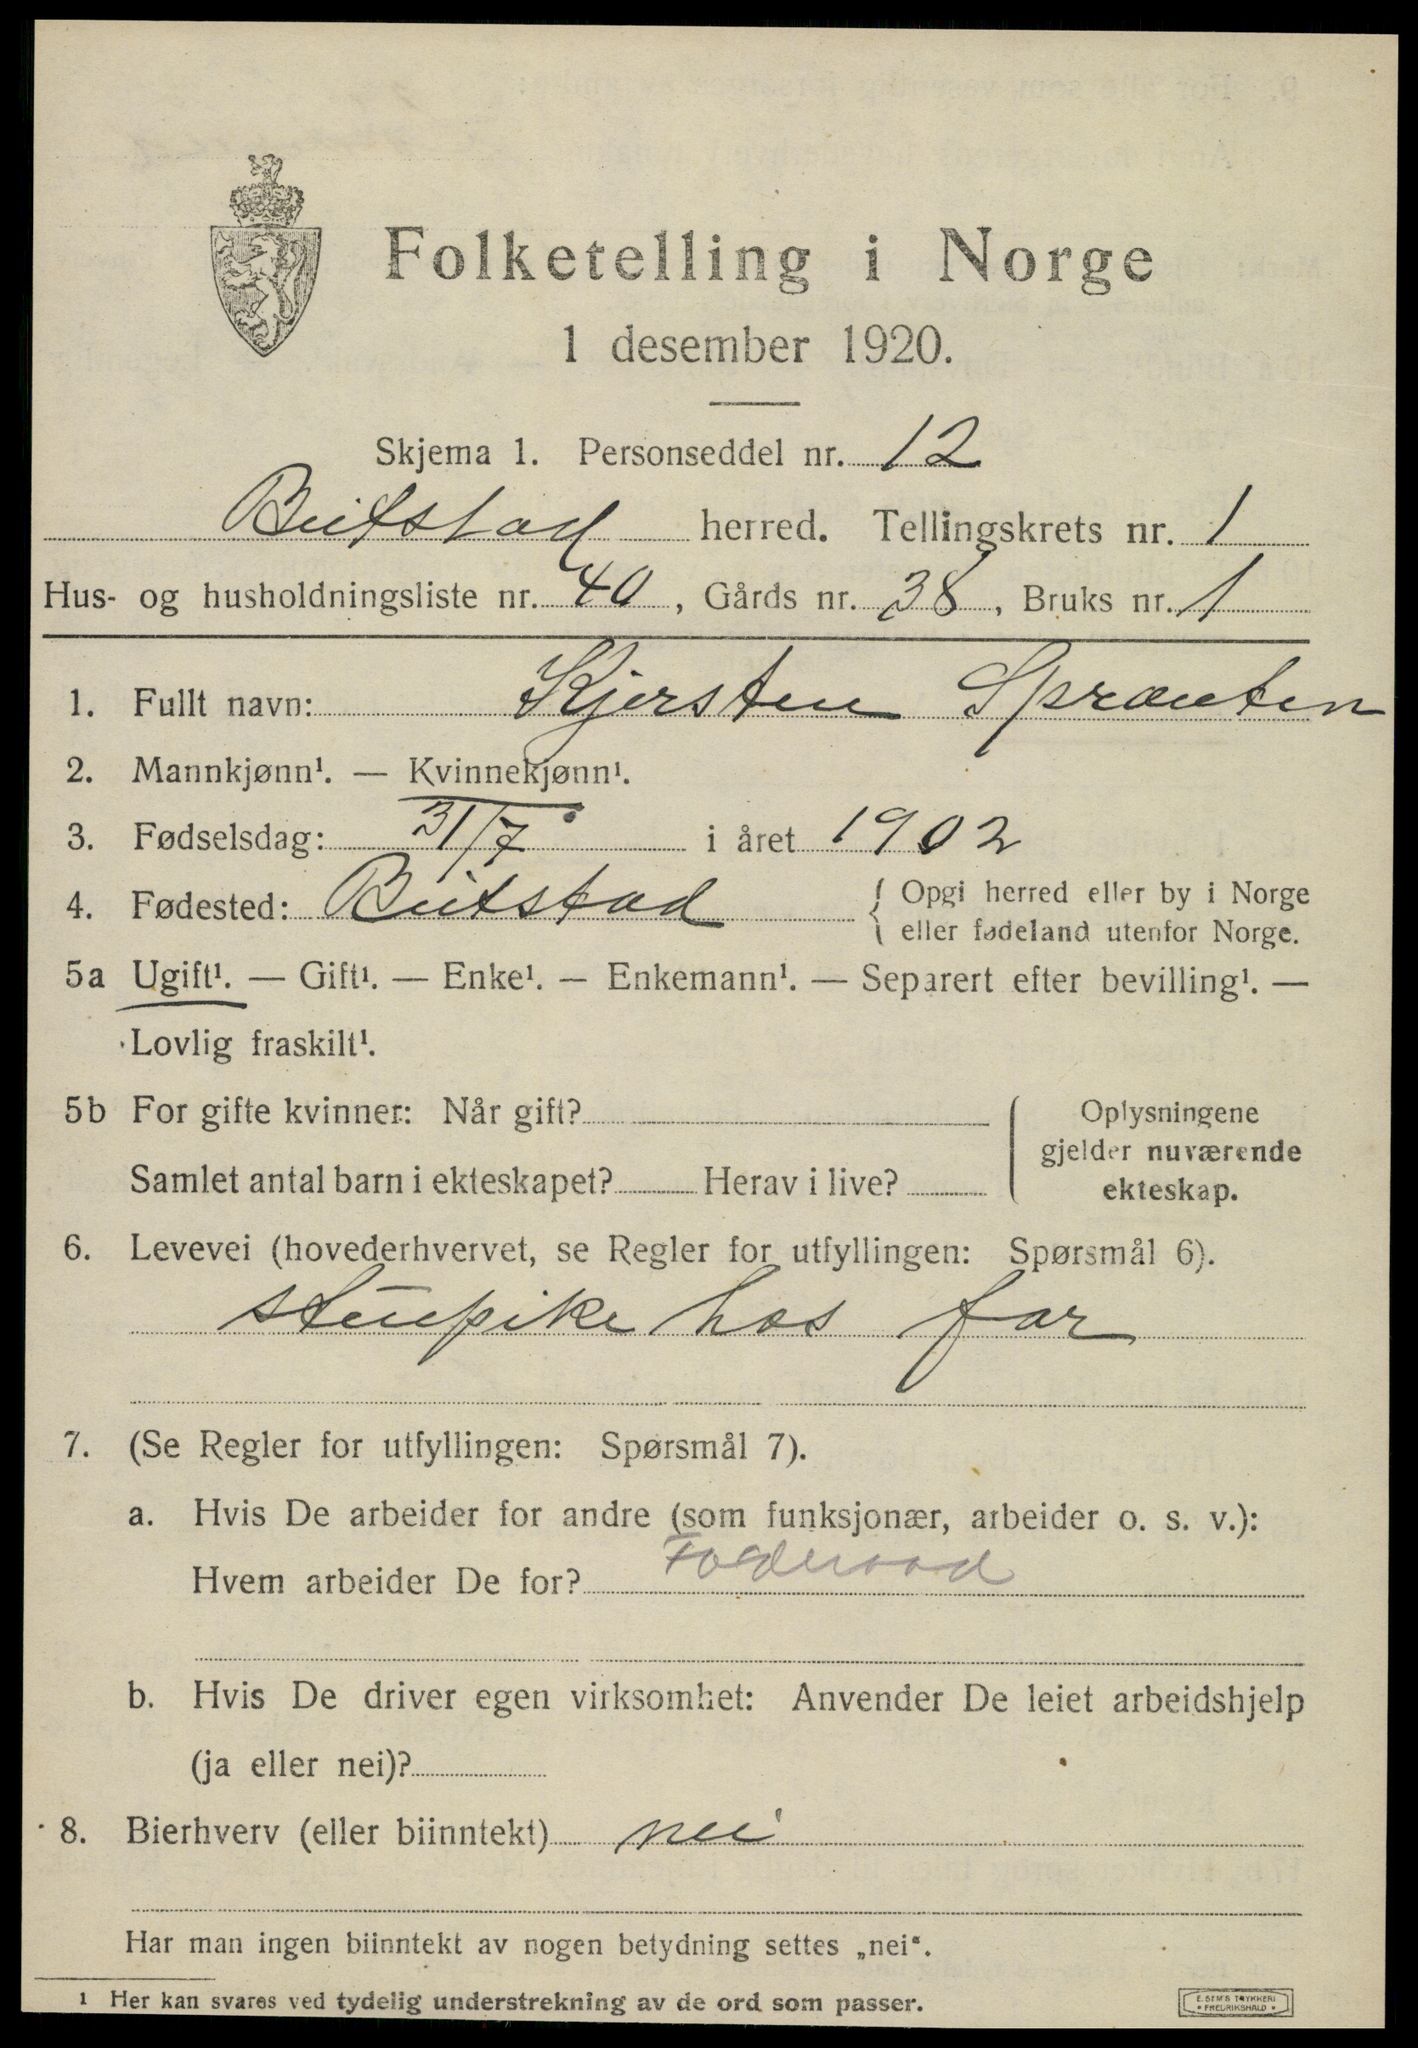 Folketelling i Norge
1 desember 1920.
Skjema 1. Personseddel nr. 12
Beitstad herred. Tellingskrets nr. 1
Hus- og husholdningsliste nr. 40, Gårds nr. 38, Bruks nr. 1
1. Fullt navn: Kjersten Sprauten
2. Mannkjønn¹. — Kvinnekjønn¹.
3. Fødselsdag: 31/7 i året 1902
4. Fødested: Beitstad { Opgi herred eller by i Norge
eller fødeland utenfor Norge.
5a Ugift¹. — Gift¹. — Enke¹. — Enkemann¹. — Separert efter bevilling¹. —
Lovlig fraskilt¹.
5b For gifte kvinner: Når gift? Oplysningene
gjelder nuværende
Samlet antal barn i ekteskapet? Herav i live? ekteskap.
6. Levevei (hovederhvervet, se Regler for utfyllingen: Spørsmål 6).
stuepike hos far
7. (Se Regler for utfyllingen: Spørsmål 7).
a. Hvis De arbeider for andre (som funksjonær, arbeider o. s. v.):
Hvem arbeider De for? Foderaad
b. Hvis De driver egen virksomhet: Anvender De leiet arbeidshjelp
(ja eller nei)?
8. Bierhverv (eller biinntekt) nei
Har man ingen biinntekt av nogen betydning settes „nei“.
1 Her kan svares ved tydelig understrekning av de ord som passer.
E. SEM'S TRYKKERI
FREDRIKSHALD